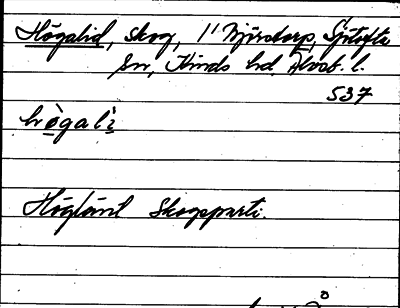 Högalid, skog, 1" Björstorp, Sjötofta
sn, Kinds hd. Älvsb. l.
537
hògalì
Höglänt skogsparti.